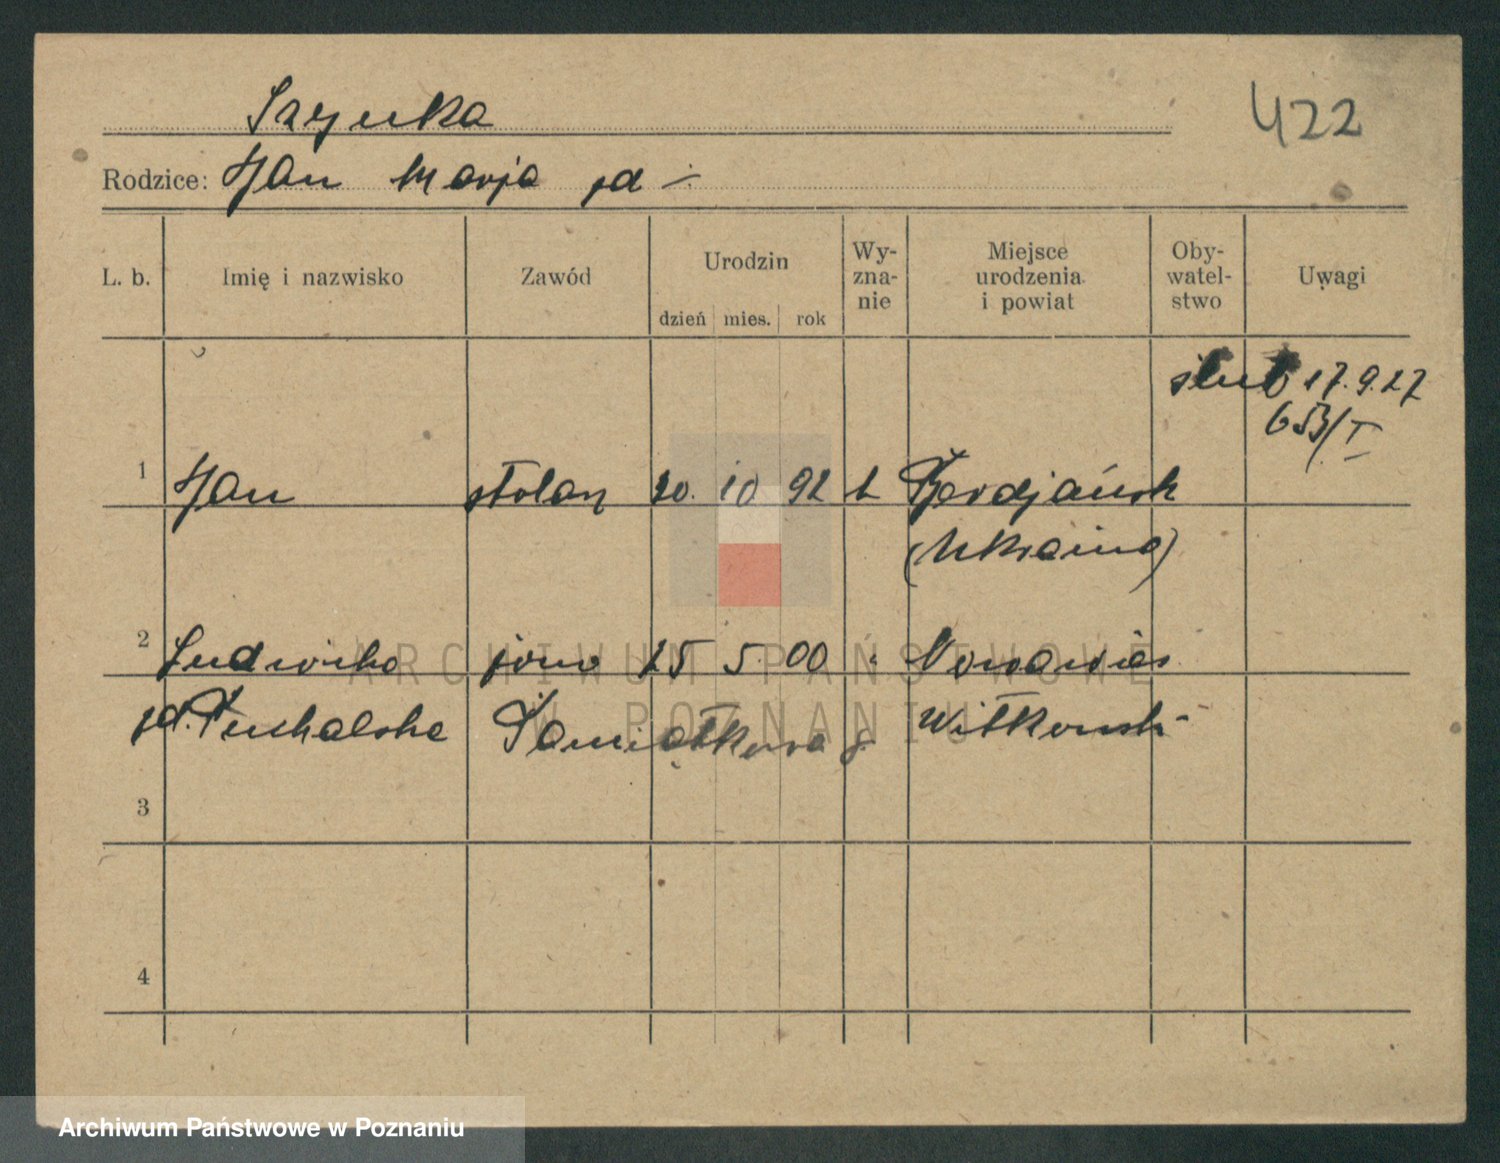 Szynka
422
Rodzice: Jan Marja zd –
L. b. Imię i nazwisko Zawód Urodzin dzień mies. rok Wy-zna-nie Miejsce urodzenia i powiat Oby-watel-stwo Uwagi
ślub 17.9.27
653/I
1 Jan stolarz 20. 10 92 Berdjańsk
(Ukraina)
2 Ludwika żona 25 5. 00 Nowawieś
zd. Puchalska Pamiątkowa Witkowski
3
4
ARCHIWUM PAŃSTWOWE
W POZNANIU
Archiwum Państwowe w Poznaniu